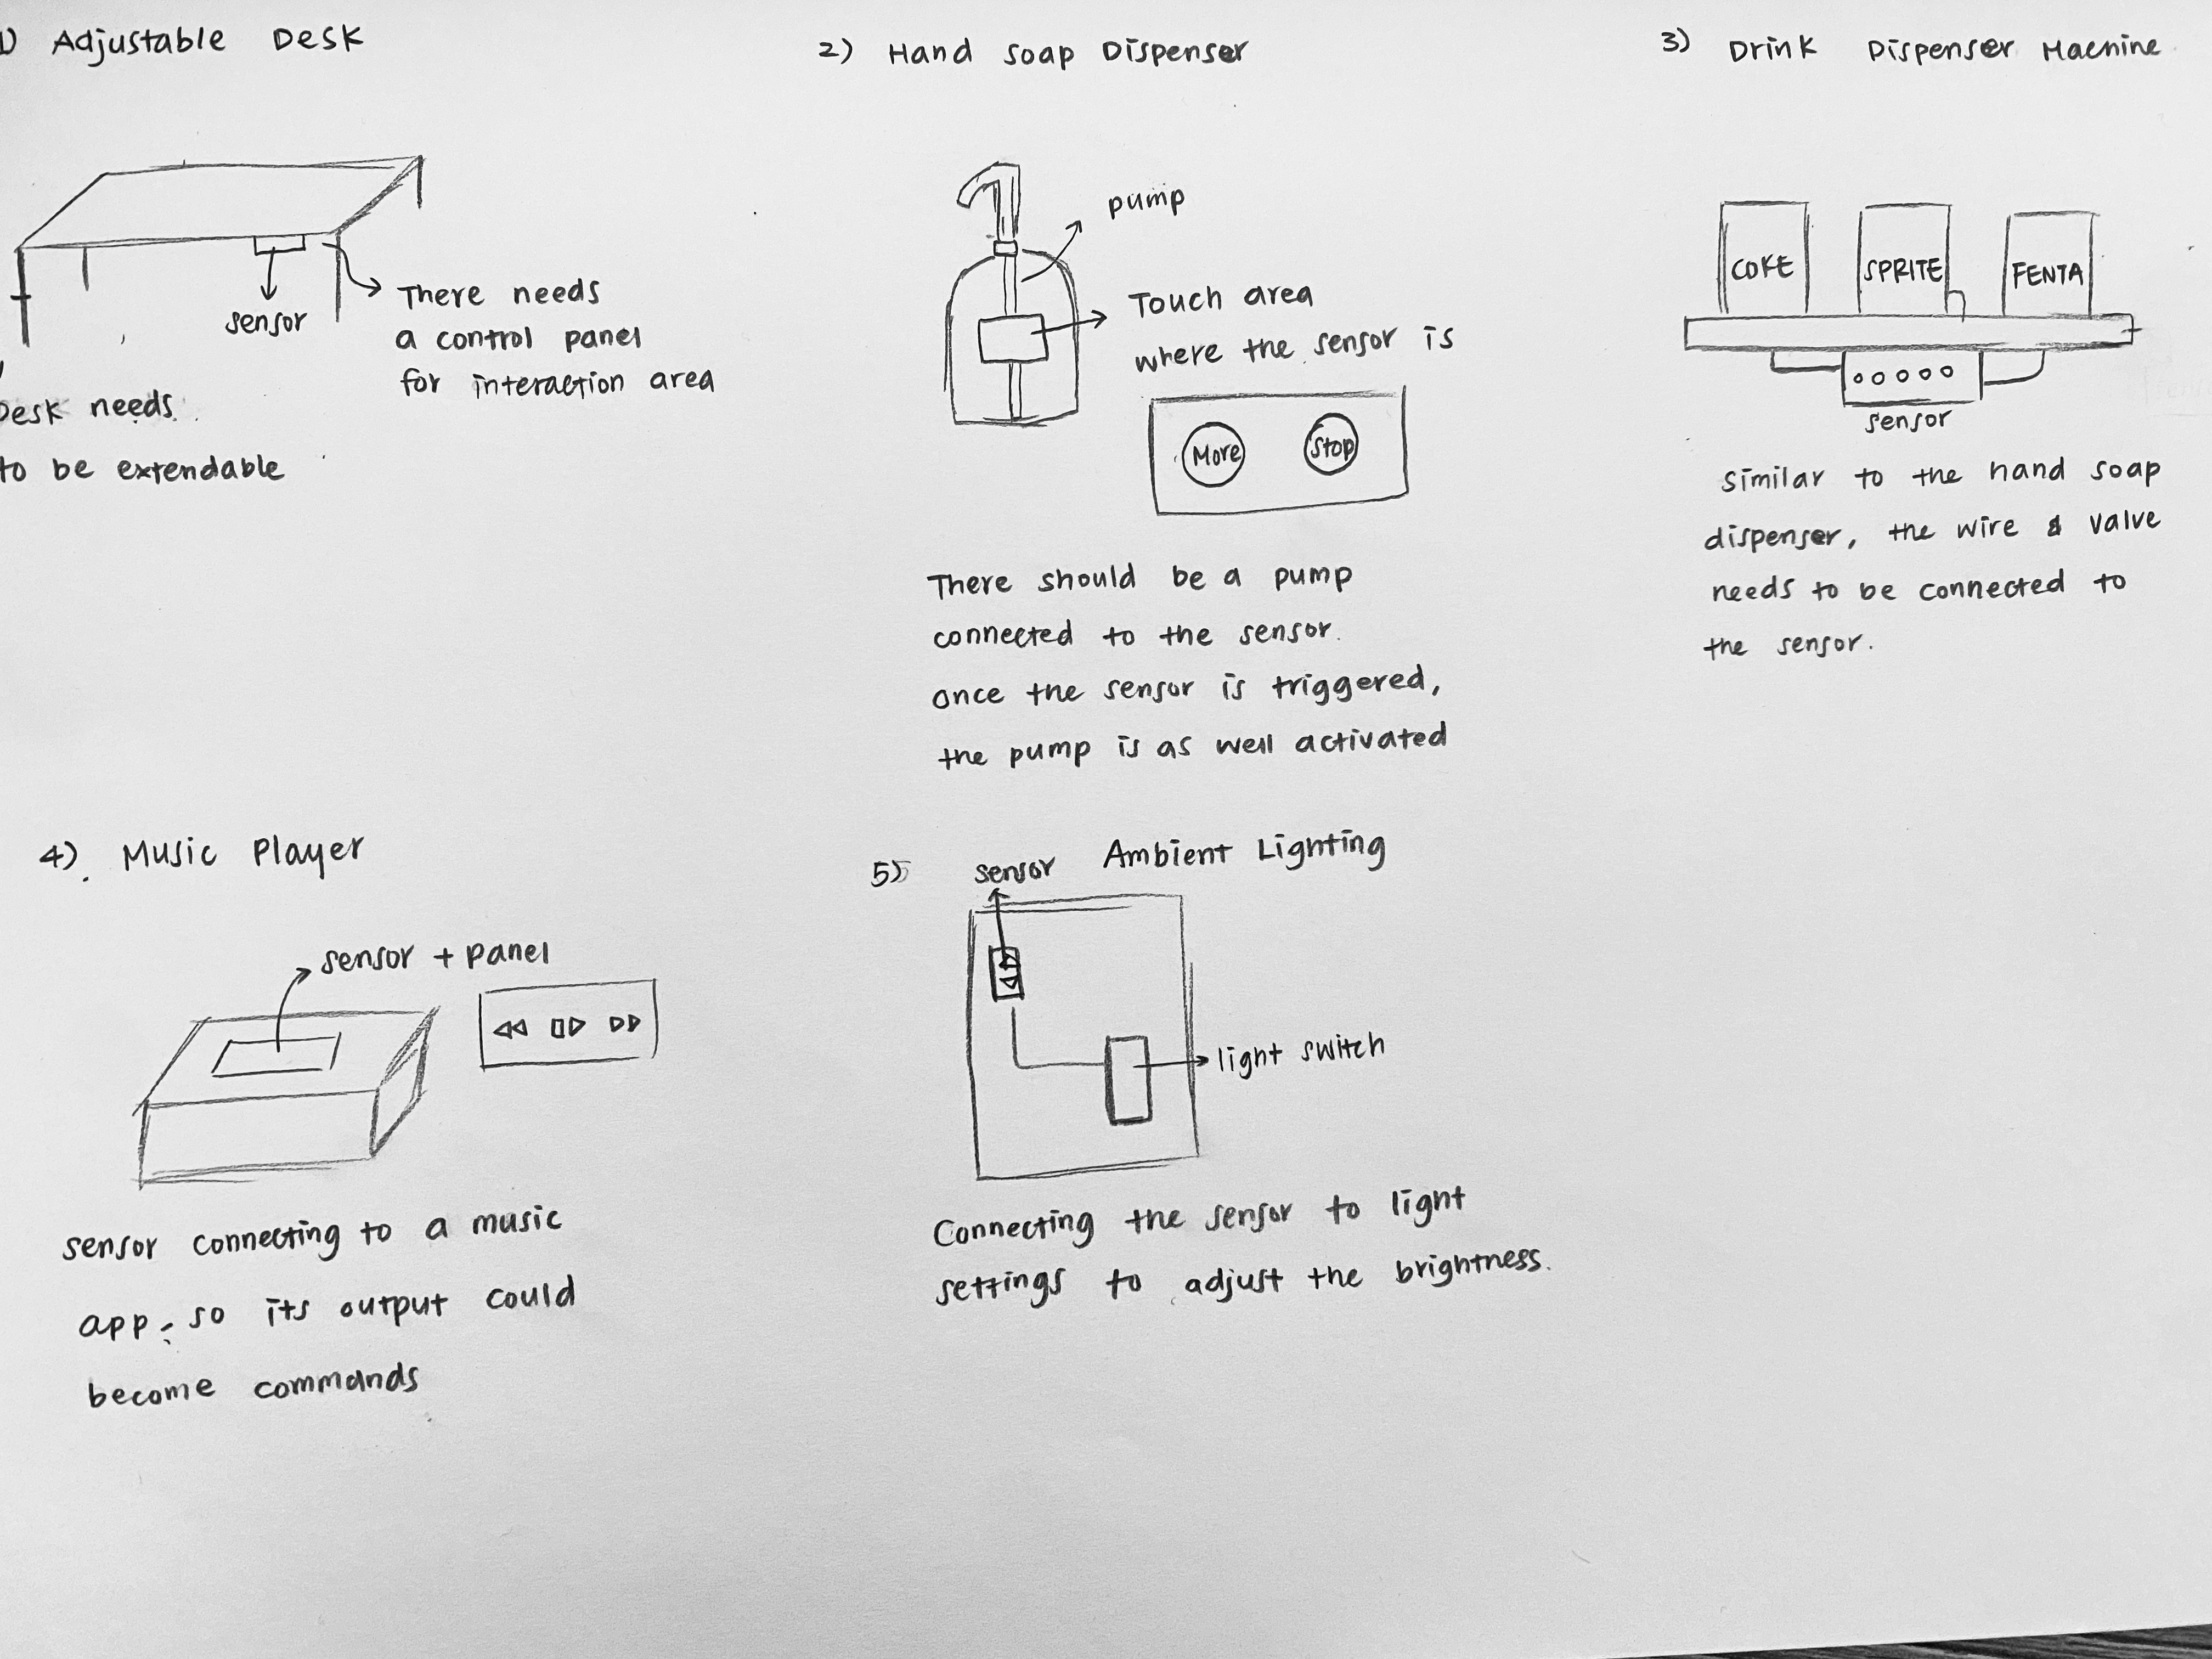 1) Adjustable Desk
sensor
There needs
a control panel
for interaction area
Desk needs
to be extendable
2) Hand Soap Dispenser
pump
Touch area
where the sensor is
More
Stop
There should be a pump
connected to the sensor.
once the sensor is triggered,
the pump is as well activated
3) Drink Dispenser Machine
COKE
SPRITE
FENTA
sensor
Similar to the hand soap
dispenser, the wire & valve
needs to be connected to
the sensor.
4). Music Player
sensor + panel
sensor connecting to a music
app, so its output could
become commands
5) Ambient Lighting
sensor
light switch
Connecting the sensor to light
settings to adjust the brightness.